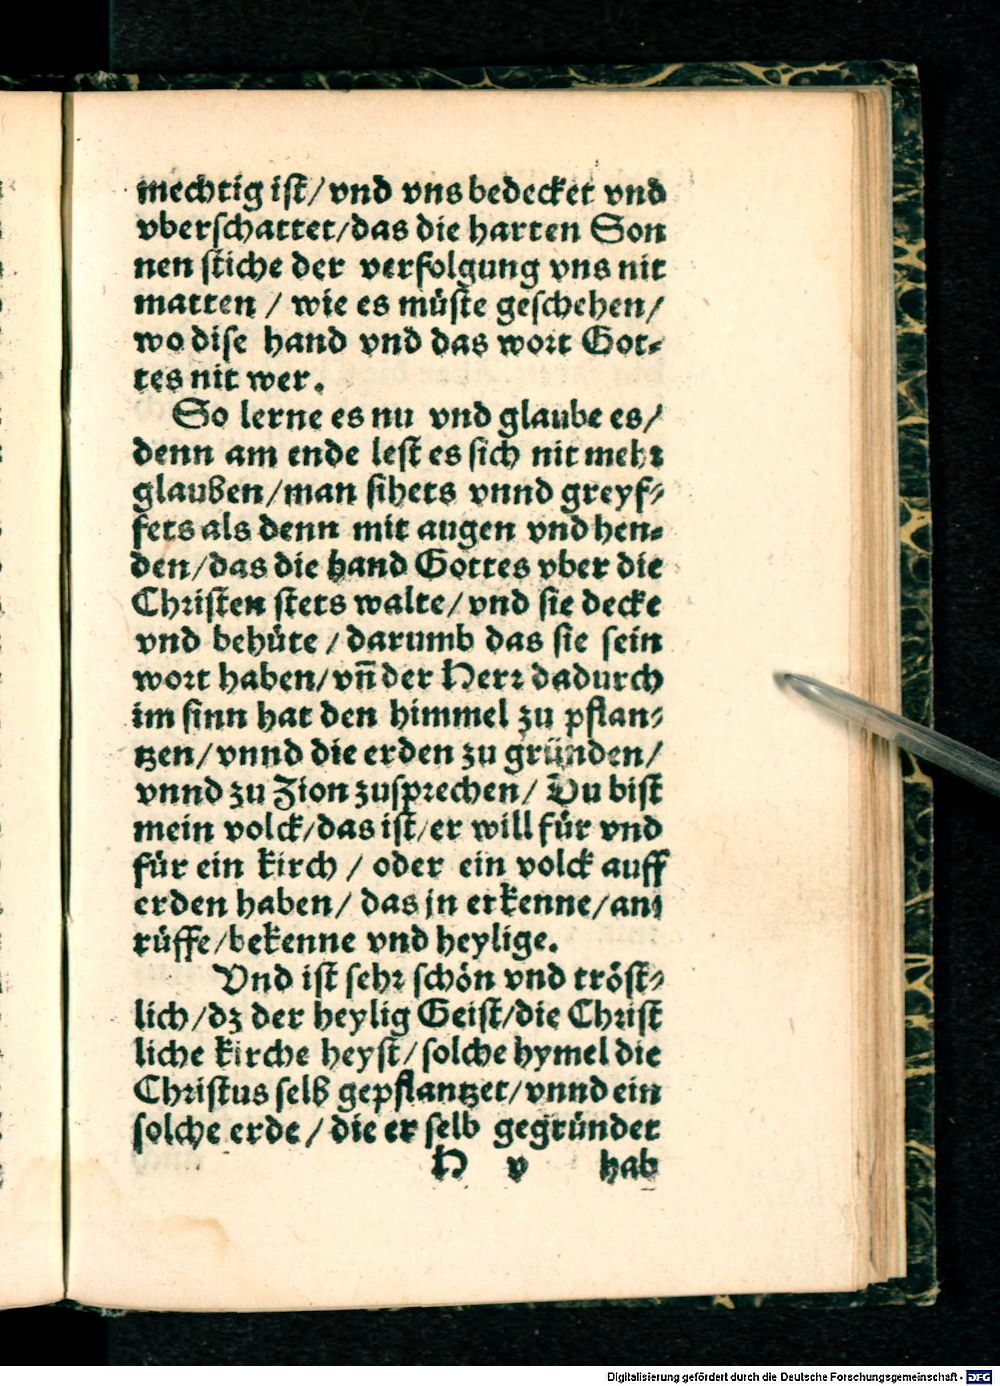 mechtig ist/vnd vns bedecket vnd
vberschattet/das die harten Son
nen stiche der verfolgung vns nit
matten / wie es müste geschehen/
wo dise hand vnd das wort Got-
tes nit wer.
So lerne es nu vnd glaube es/
denn am ende lest es sich nit mehr
glauben/man sihets vnnd greyf-
fets als denn mit augen vnd hen-
den/das die hand Gottes vber die
Christen stets walte/vnd sie decke
vnd behüte / darumb das sie sein
wort haben/vñ der Herr dadurch
im sinn hat den himmel zu pflan-
tzen/vnnd die erden zu gründen/
vnnd zu Zion zusprechen/ Du bist
mein volck/das ist/er will für vnd
für ein kirch / oder ein volck auff
erden haben/ das jn erkenne/an
rüffe/bekenne vnd heylige.
Vnd ist sehr schön vnd tröst-
lich/dz der heylig Geist/die Christ
liche kirche heyst/solche hymel die
Christus selb gepflantzet/vnnd ein
solche erde/die er selb gegründet
H v hab
Digitalisierung gefördert durch die Deutsche Forschungsgemeinschaft - DFG